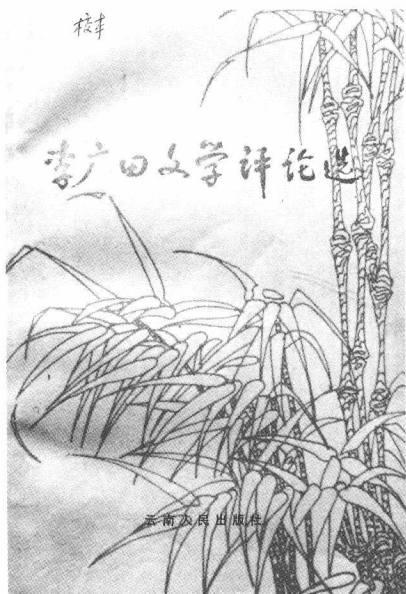 李广田文学评论选
云南人民出版社